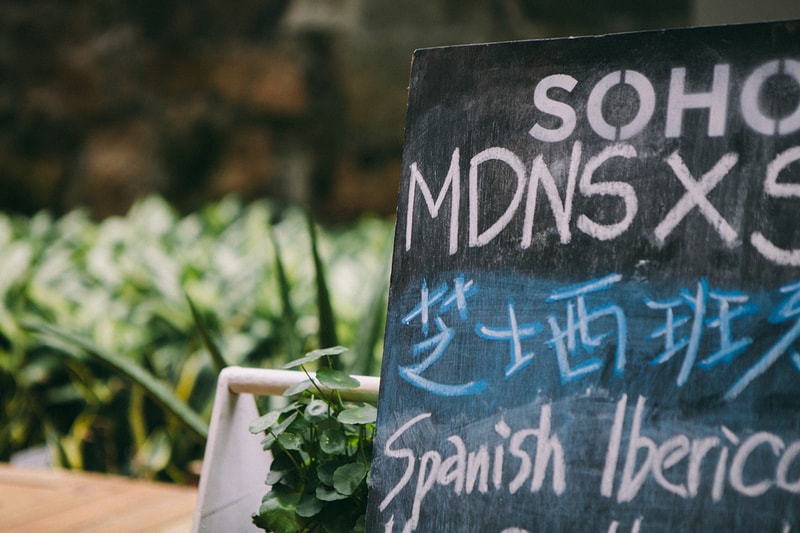 SOHO
MDNS X S
芝士西班
Spanish Iberico